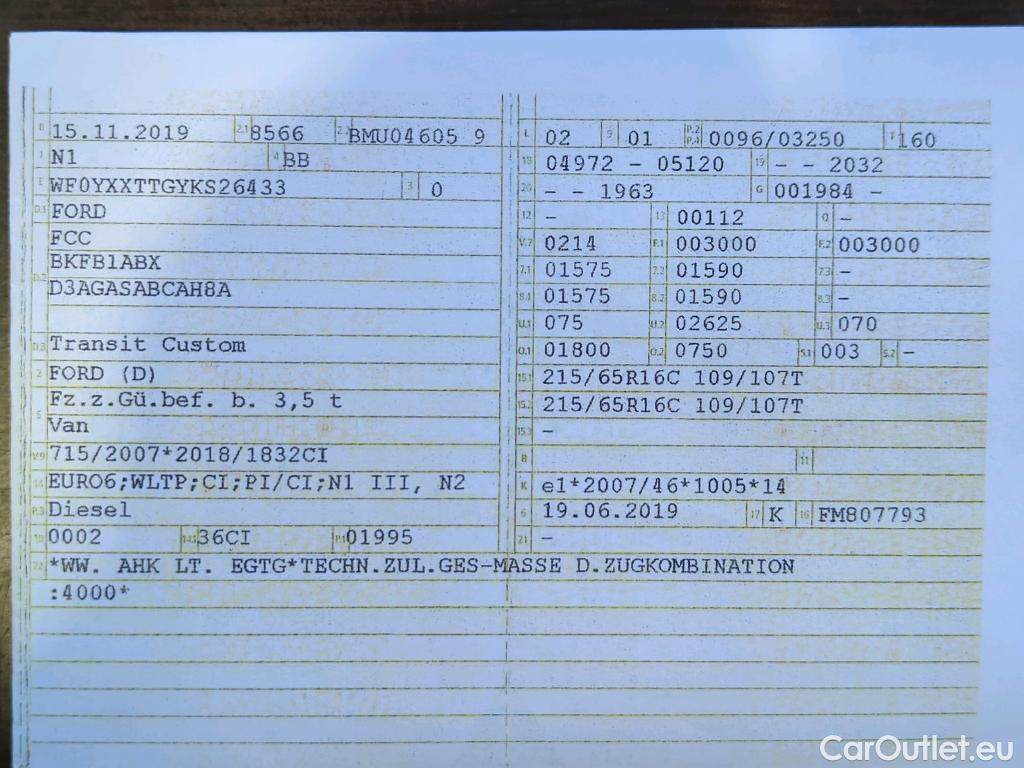 B 15.11.2019 2.1 8566 2.2 BMU04605 9
J N1 4 BB
E WF0YXXTTGYKS26433 3 0
D.1 FORD
FCC
D.2 BKFB1ABX
D3AGASABCAH8A
D.3 Transit Custom
2 FORD (D)
Fz.z.Gü.bef. b. 3,5 t
5 Van
V.9 715/2007*2018/1832CI
14 EURO6;WLTP;CI;PI/CI;N1 III, N2
P.3 Diesel
10 0002 14.1 36CI P.1 01995
L 02 9 01 P.2 P.4 0096/03250 T 160
18 04972 - 05120 19 - - 2032
20 - - 1963 G 001984 -
12 - 13 00112 Q -
V.7 0214 F.1 003000 F.2 003000
7.1 01575 7.2 01590 7.3 -
8.1 01575 8.2 01590 8.3 -
U.1 075 U.2 02625 U.3 070
O.1 01800 O.2 0750 S.1 003 S.2 -
15.1 215/65R16C 109/107T
15.2 215/65R16C 109/107T
15.3 -
R 11
K e1*2007/46*1005*14
6 19.06.2019 17 K 16 FM807793
21 -
22 *WW. AHK LT. EGTG*TECHN.ZUL.GES-MASSE D.ZUGKOMBINATION
:4000*
CarOutlet.eu